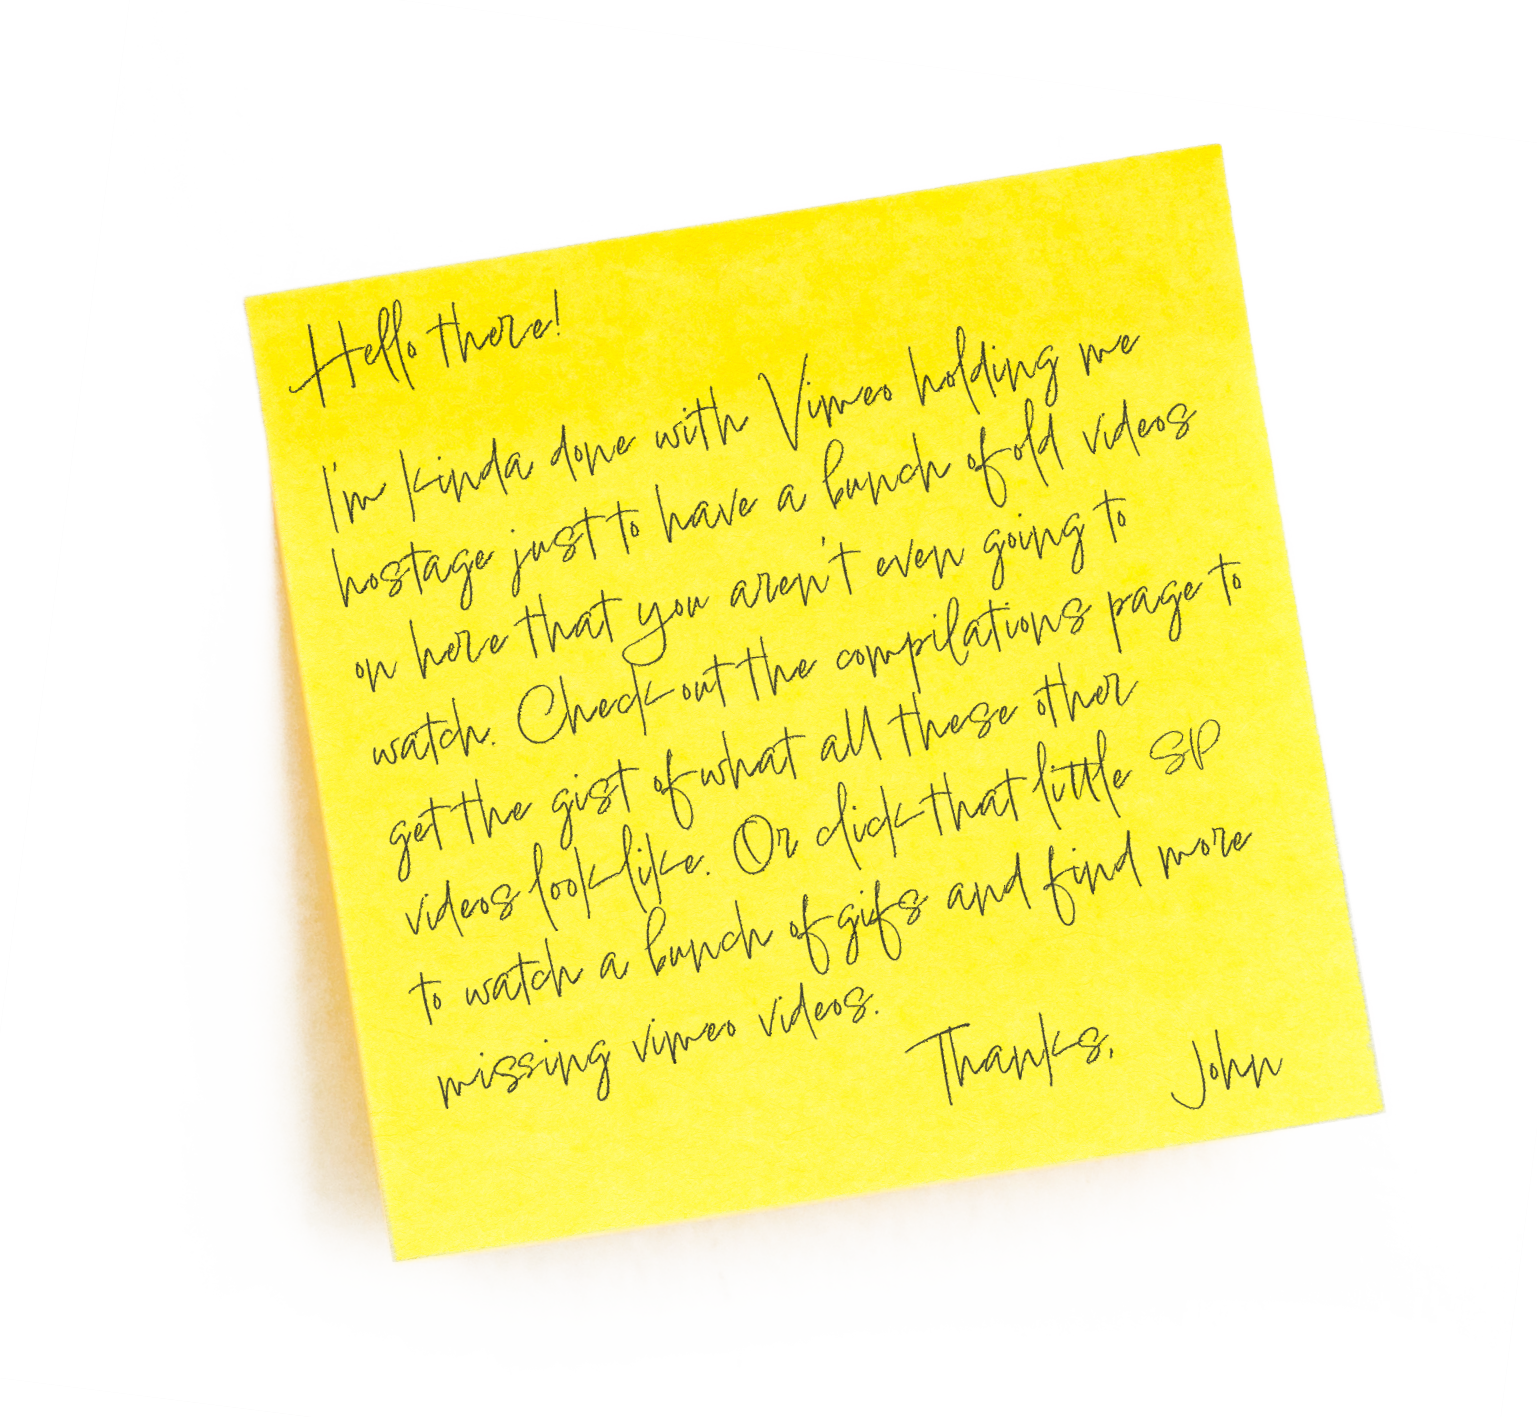 Hello there!
I'm kinda done with Vimeo holding me
hostage just to have a bunch of old videos
on here that you aren't even going to
watch. Check out the compilations page to
get the gist of what all these other
videos look like. Or click that little SP
to watch a bunch of gifs and find more
missing vimeo videos.
Thanks,
John